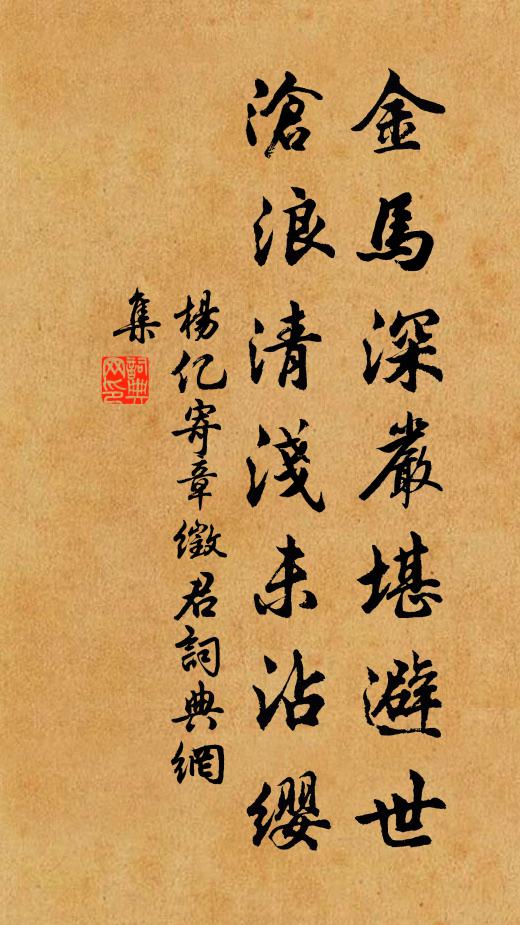 金馬深嚴堪避世
滄浪清淺未沾缨
楊亿寄章徵君詞典網
集
詞典
网印